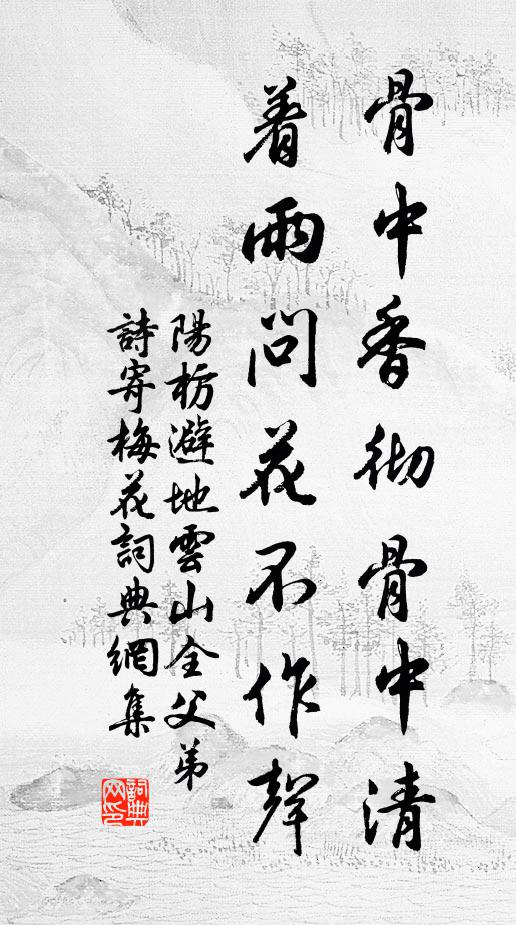 骨中香彻骨中清
着雨問花不作聲
陽枋避地雲山全父弟
詩寄梅花詞典網集
詞典網印